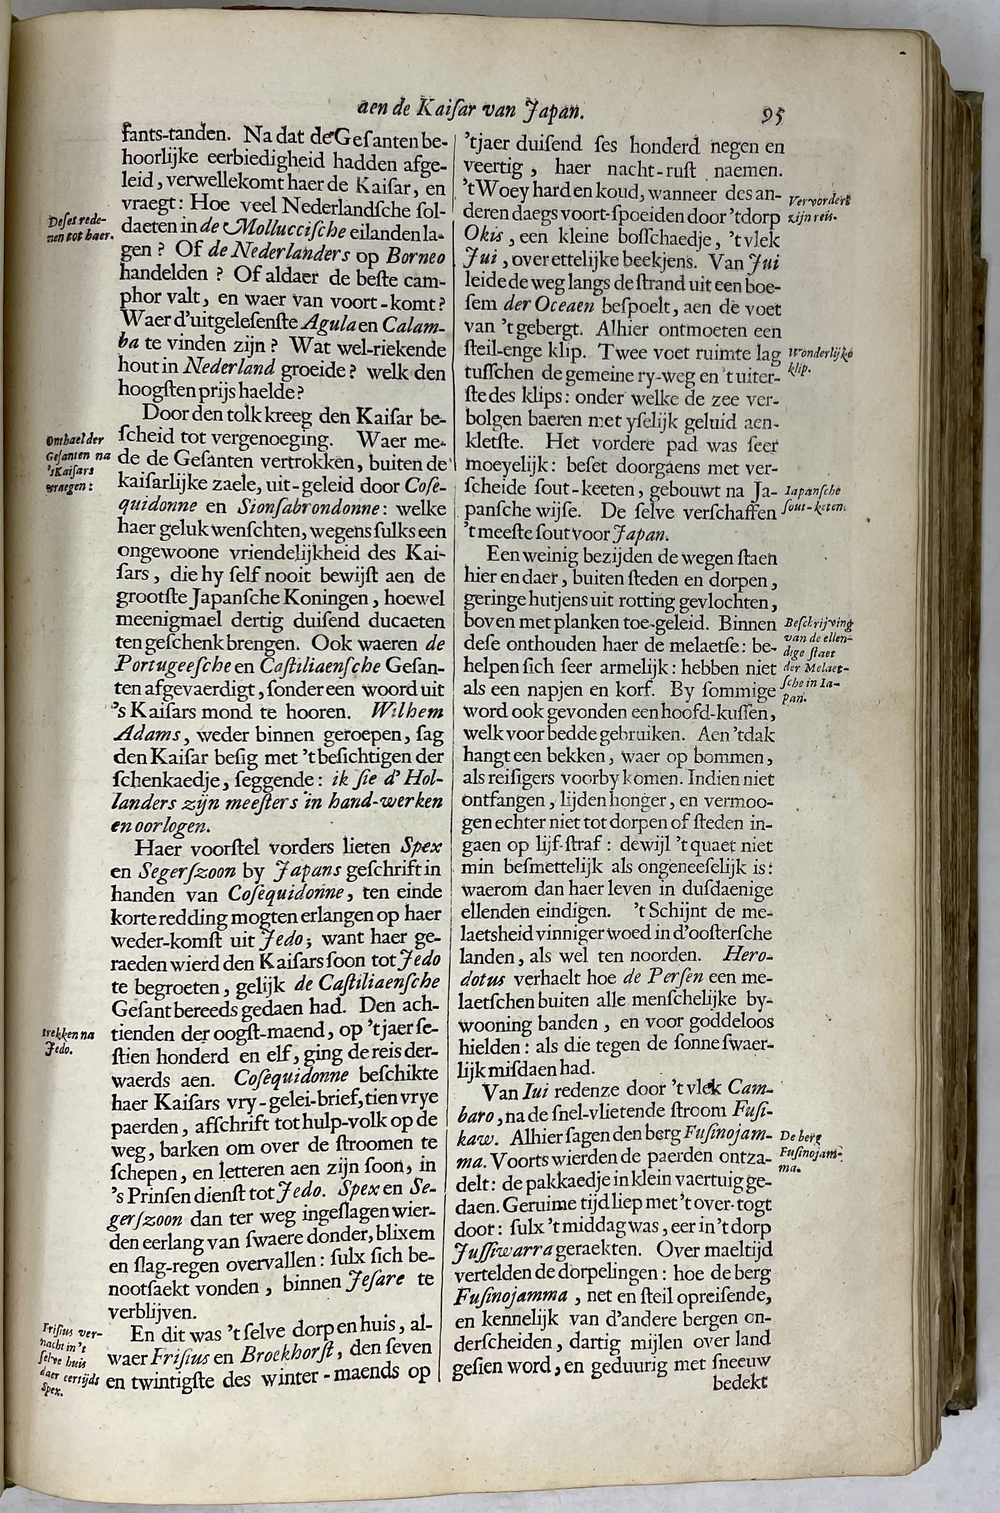 aen de Kaiſar van Japan. 95
fants-tanden. Na dat de Geſanten be-
hoorlijke eerbiedigheid hadden afge-
leid, verwellekomt haer de Kaiſar, en
vraegt: Hoe veel Nederlandſche ſol-
daeten in de Mollucciſche eilanden la-
gen? Of de Nederlanders op Borneo
handelden? Of aldaer de beſte cam-
phor valt, en waer van voort-komt?
Waer d'uitgeleſenſte Agula en Calam-
ba te vinden zijn? Wat wel-riekende
hout in Nederland groeide? welk den
hoogſten prijs haelde?
Door den tolk kreeg den Kaiſar be-
ſcheid tot vergenoeging. Waer me-
de de Geſanten vertrokken, buiten de
kaiſarlijke zaele, uit-geleid door Coſe-
quidonne en Sionſabrondonne: welke
haer geluk wenſchten, wegens ſulks een
ongewoone vriendelijkheid des Kai-
ſars, die hy ſelf nooit bewijſt aen de
grootſte Japanſche Koningen, hoewel
meenigmael dertig duiſend ducaeten
ten geſchenk brengen. Ook waeren de
Portugeeſche en Caſtiliaenſche Geſan-
ten afgevaerdigt, ſonder een woord uit
's Kaiſars mond te hooren. Wilhem
Adams, weder binnen geroepen, ſag
den Kaiſar beſig met 't beſichtigen der
ſchenkaedje, ſeggende: ik ſie d' Hol-
landers zijn meeſters in hand-werken
en oorlogen.
Haer voorſtel vorders lieten Spex
en Segerſzoon by Japans geſchrift in
handen van Coſequidonne, ten einde
korte redding mogten erlangen op haer
weder-komſt uit Jedo; want haer ge-
raeden wierd den Kaiſars ſoon tot Jedo
te begroeten, gelijk de Caſtiliaenſche
Geſant bereeds gedaen had. Den ach-
tienden der oogſt-maend, op 't jaer ſe-
ſtien honderd en elf, ging de reis der-
waerds aen. Coſequidonne beſchikte
haer Kaiſars vry-gelei-brief, tien vrye
paerden, afſchrift tot hulp-volk op de
weg, barken om over de ſtroomen te
ſchepen, en letteren aen zijn ſoon, in
's Prinſen dienſt tot Jedo. Spex en Se-
gerſzoon dan ter weg ingeſlagen wier-
den eerlang van ſwaere donder, blixem
en ſlag-regen overvallen: ſulx ſich be-
nootſaekt vonden, binnen Jeſare te
verblijven.
En dit was 't ſelve dorp en huis, al-
waer Friſius en Broekhorſt, den ſeven
en twintigſte des winter-maends op
Deſes rede-
nen tot haer.
Onthael der
Geſanten na
's Kaiſars
vraegen:
trekken na
Jedo.
Friſius ver-
nacht in 't
ſelve huis
daer eertijds
Spex.
'tjaer duiſend ſes honderd negen en
veertig, haer nacht-ruſt naemen.
't Woey hard en koud, wanneer des an-
deren daegs voort-ſpoeiden door 't dorp
Okis, een kleine boſſchaedje, 't vlek
Jui, over ettelijke beekjens. Van Jui
leide de weg langs de ſtrand uit een boe-
ſem der Oceaen beſpoelt, aen de voet
van 't gebergt. Alhier ontmoeten een
ſteil-enge klip. Twee voet ruimte lag
tuſſchen de gemeine ry-weg en 't uiter-
ſte des klips: onder welke de zee ver-
bolgen baeren met yſelijk geluid aen-
kletſte. Het vordere pad was ſeer
moeyelijk: beſet doorgaens met ver-
ſcheide ſout-keeten, gebouwt na Ja-
panſche wijſe. De ſelve verſchaffen
't meeſte ſout voor Japan.
Een weinig bezijden de wegen ſtaen
hier en daer, buiten ſteden en dorpen,
geringe hutjens uit rotting gevlochten,
boven met planken toe-geleid. Binnen
deſe onthouden haer de melaetſe: be-
helpen ſich ſeer armelijk: hebben niet
als een napjen en korf. By ſommige
word ook gevonden een hoofd-kuſſen,
welk voor bedde gebruiken. Aen 'tdak
hangt een bekken, waer op bommen,
als reiſigers voorby komen. Indien niet
ontfangen, lijden honger, en vermoo-
gen echter niet tot dorpen of ſteden in-
gaen op lijf-ſtraf: dewijl 't quaet niet
min beſmettelijk als ongeneeſelijk is:
waerom dan haer leven in dusdaenige
ellenden eindigen. 't Schijnt de me-
laetsheid vinniger woed in d'ooſterſche
landen, als wel ten noorden. Hero-
dotus verhaelt hoe de Perſen een me-
laetſchen buiten alle menſchelijke by-
wooning banden, en voor goddeloos
hielden: als die tegen de ſonne ſwaer-
lijk miſdaen had.
Van Iui redenze door 't vlek Cam-
baro, na de ſnel-vlietende ſtroom Fuſi-
kaw. Alhier ſagen den berg Fuſinojam-
ma. Voorts wierden de paerden ontza-
delt: de pakkaedje in klein vaertuig ge-
daen. Geruime tijd liep met 't over-togt
door: ſulx 't middag was, eer in 't dorp
Juſſiwarra geraekten. Over maeltijd
vertelden de dorpelingen: hoe de berg
Fuſinojamma, net en ſteil opreiſende,
en kennelijk van d'andere bergen on-
derſcheiden, dartig mijlen over land
geſien word, en geduurig met ſneeuw
bedekt
Vervordert
zijn reis.
Wonderlijke
klip.
Iapanſche
ſout-keten.
Beſchrijving
van de ellen-
dige ſtaet
der Melaet-
ſche in Ia-
pan.
De berg
Fuſinojam-
ma.